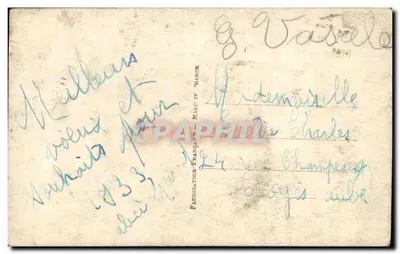 Meilleurs
voeux et
souhaits pour
1933
FABRICATION FRANÇAISE - MADE IN FRANCE
CPAPHIL
G. Vasele
Mademoiselle
Charles
24 rue Champeaux
Troyes Aube